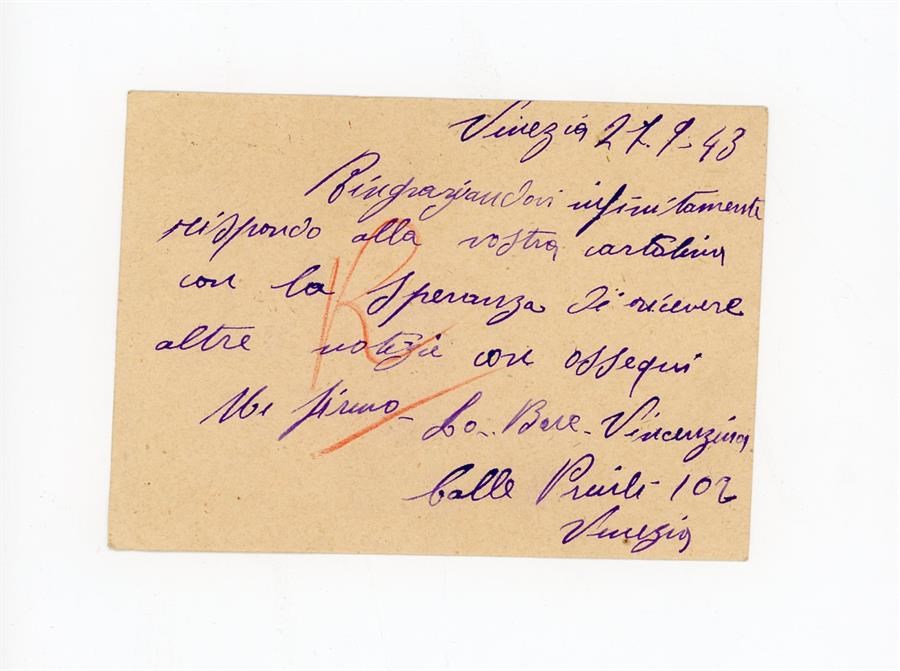 Venezia 27.9.43
Ringraziandovi infinitamente
rispondo alla vostra cartolina
con la speranza di ricevere
altre notizie con ossequi
Mi firmo - Lo - Bue - Vincenzina
Calle Priuli - 102
Venezia
R